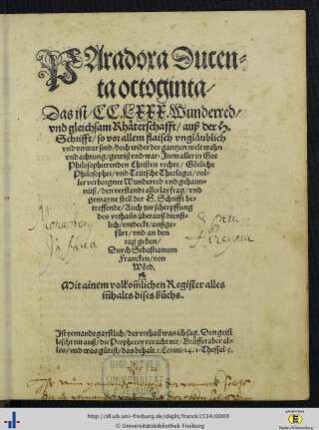 PAradoxa Ducen-
ta octoginta/
Das ist/ CCLXXX. Wunderred/
vnd gleichsam Rhäterschafft/ auß der H.
Schrifft/ so vor allem flaisch vngläublich
vnd vnwar send/ doch wider der gantzen welt wahn
vnd achtung/ gewiß vnd war. Item aller in Got
Philosophierenden Christen rechte/ Götliche
Philosophei/ vnd Teütsche Theologei/ vol-
ler verborgner Wunderred vnd gehaim-
nuß/ den verstandt aller
gemayne stell der H. Schrifft be-
treffende/ Auch zur scherpffung
des vrthails überauß dienst-
lich/ entdeckt/ außge-
fürt/ vnd an den
tag geben/
Durch Sebastianum
Francken/ von
Wörd.
Mit ainem volkom̃lichen Register alles
inhalts dises bůchs.
Ist yemandt gaystlich/ der vrthail was ich sag. Den geist
lescht nit auß/ die Prophecey veracht nit/ Brüffet aber al-
les/ vnd was gůt ist/ das behalt. 1. Corint. 14. 1. Thessal. 5.
http://dl.ub.uni-freiburg.de/diglit/franck1534/0009
© Universitätsbibliothek Freiburg
Baden-Württemberg